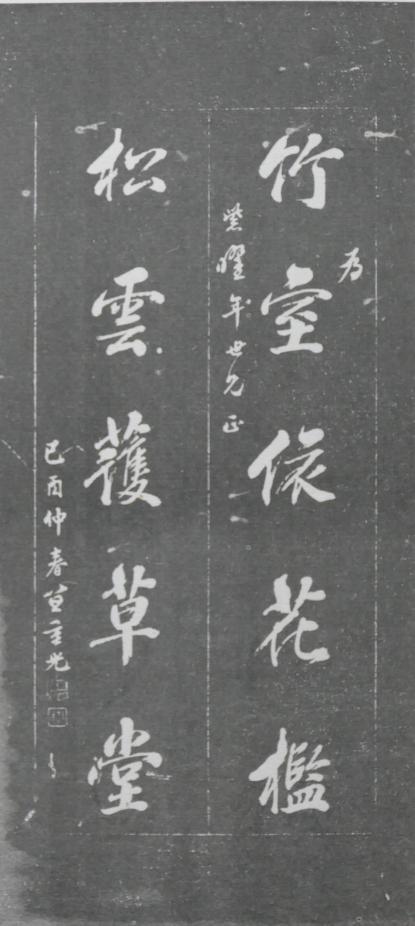 为
竹室依花檻
紫曜年世兄正
松雲護草堂
己酉仲春笪重光